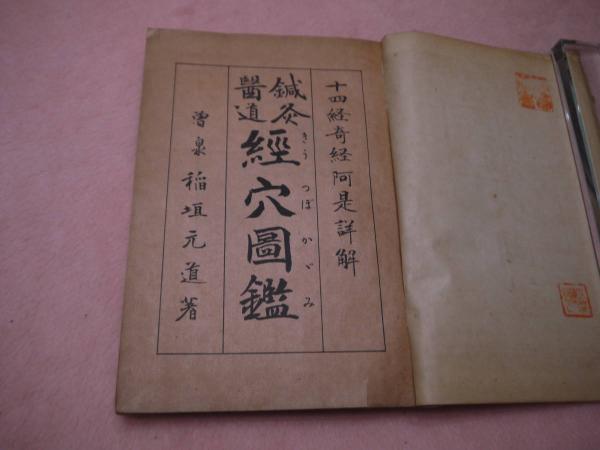 十四経奇経阿是詳解
鍼灸醫道
經穴圖鑑
きう つぼ かゞみ
曽泉 稲垣元道著